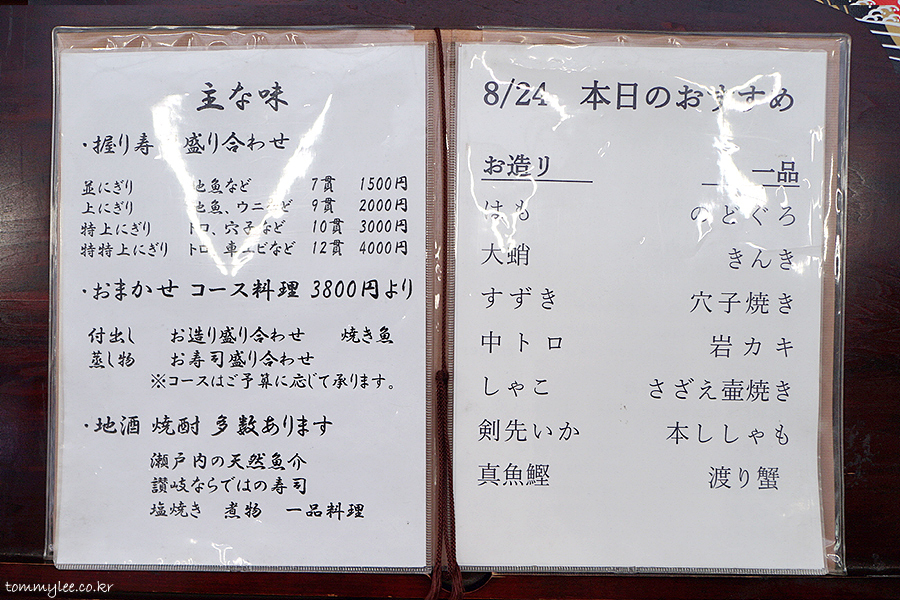 主な味
・握り寿 盛り合わせ
並にぎり 地魚など 7貫 1500円
上にぎり 地魚、ウニなど 9貫 2000円
特上にぎり トロ、穴子など 10貫 3000円
特特上にぎり トロ、車エビなど 12貫 4000円
・おまかせ コース料理 3800円より
付出し お造り盛り合わせ 焼き魚
蒸し物 お寿司盛り合わせ
※コースはご予算に応じて承ります。
・地酒 焼酎 多数あります
瀬戸内の天然魚介
讃岐ならではの寿司
塩焼き 煮物 一品料理
8/24 本日のおすすめ
お造り
はも
大蛸
すずき
中トロ
しゃこ
剣先いか
真魚鰹
一品
のどぐろ
きんき
穴子焼き
岩カキ
さざえ壷焼き
本ししゃも
渡り蟹
tommylee.co.kr